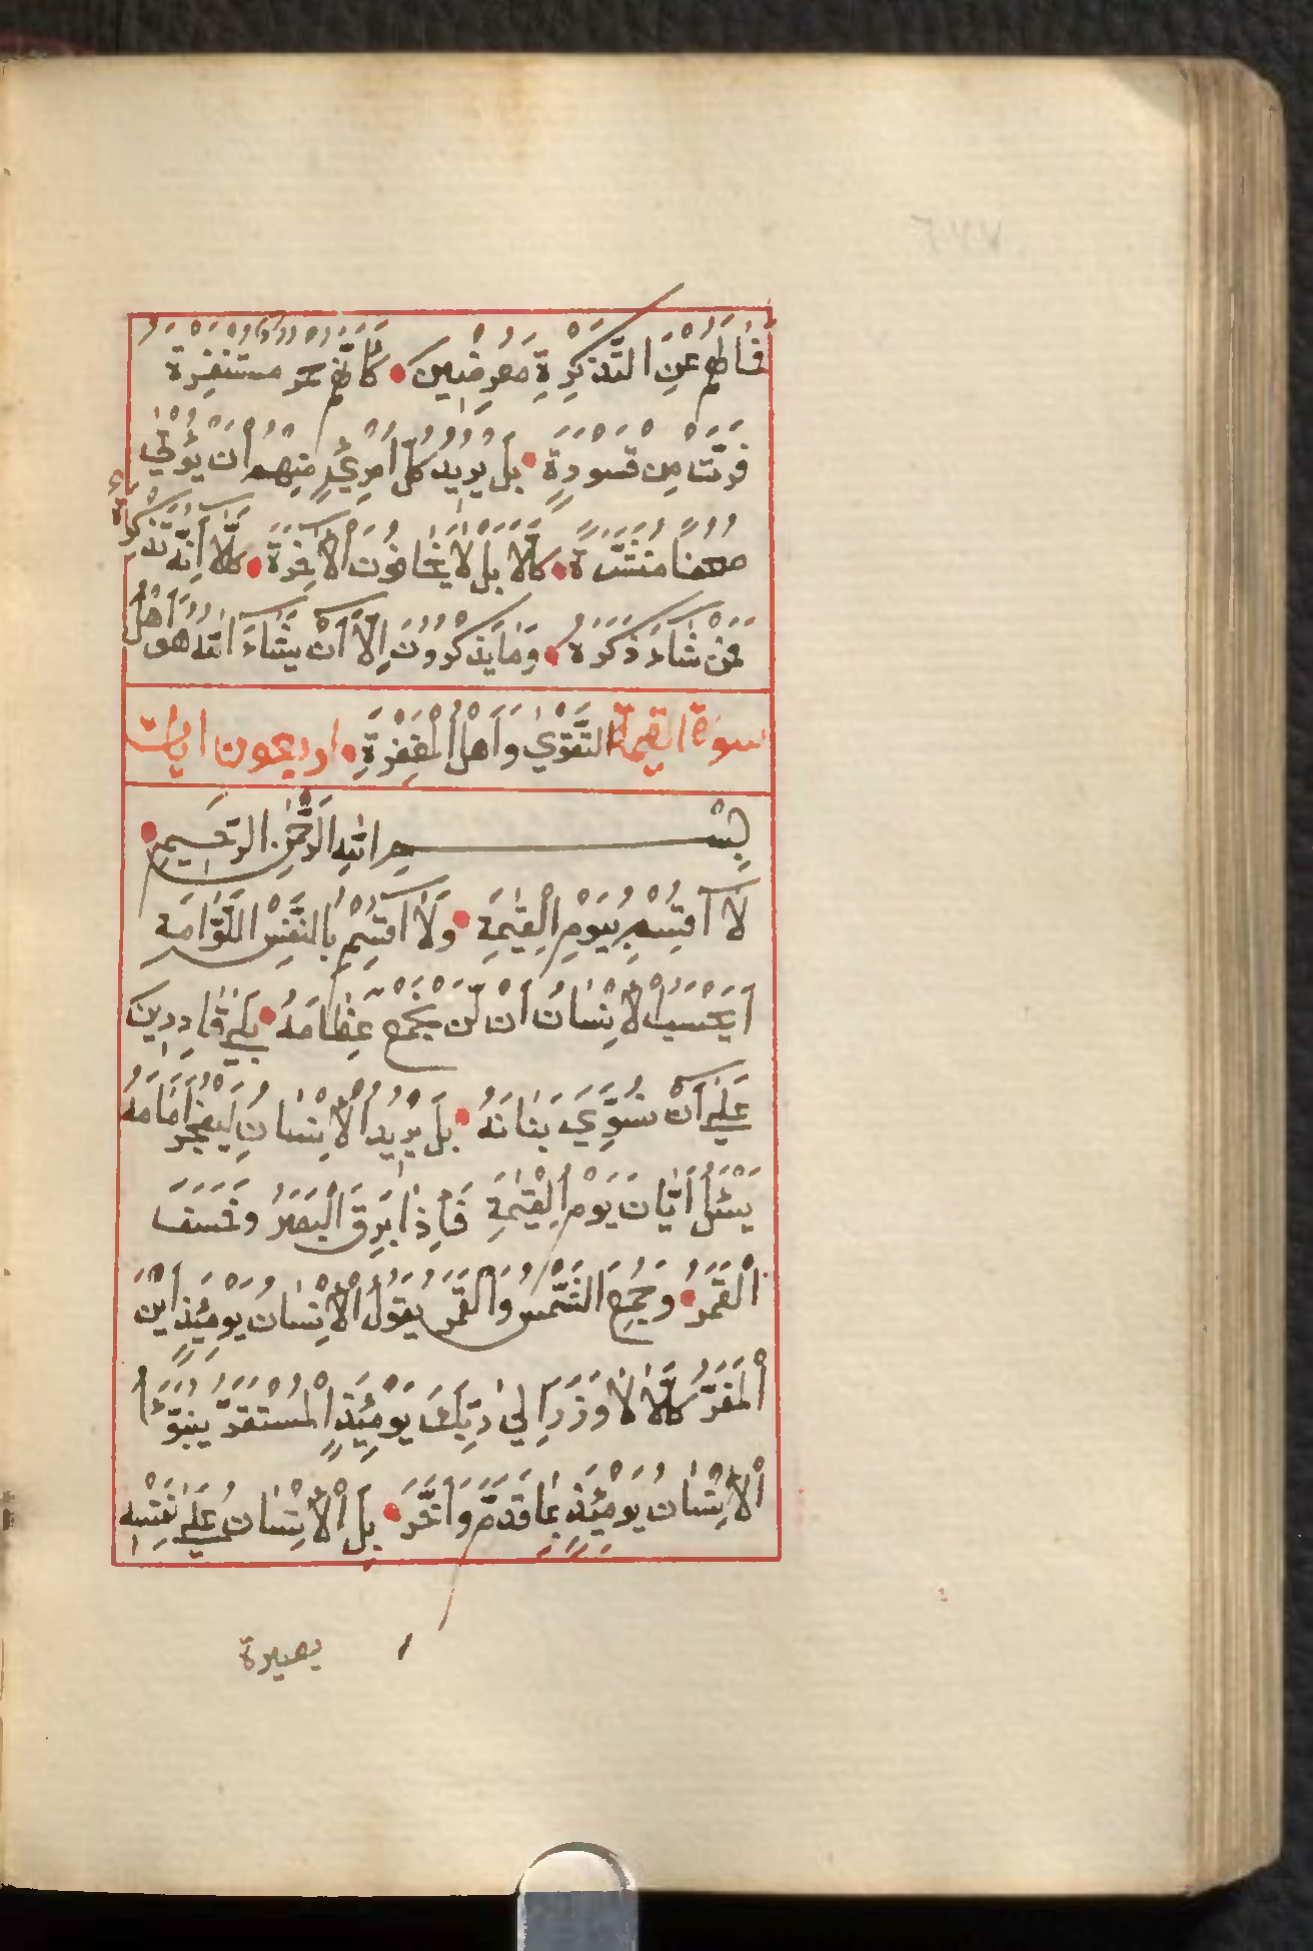 فَمَا لَهُمْ عَنِ التَّذْكِرَةِ مُعْرِضِينَ كَأَنَّهُمْ حُمُرٌ مُسْتَنْفِرَةٌ
فَرَّتْ مِنْ قَسْوَرَةٍ بَلْ يُرِيدُ كُلُّ امْرِئٍ مِنْهُمْ أَنْ يُؤْتٰى
صُحُفًا مُنَشَّرَةً كَلَّا بَلْ لَا يَخَافُونَ الْآخِرَةَ كَلَّا إِنَّهُ تَذْكِرَةٌ
فَمَنْ شَاءَ ذَكَرَهُ وَمَا يَذْكُرُونَ إِلَّا أَنْ يَشَاءَ اللّٰهُ هُوَ أَهْلُ
سورة القيمة التَّقْوٰى وَأَهْلُ الْمَغْفِرَةِ اربعون ايات
بِسْمِ اللّٰهِ الرَّحْمٰنِ الرَّحِيمِ
لَا أُقْسِمُ بِيَوْمِ الْقِيٰمَةِ وَلَا أُقْسِمُ بِالنَّفْسِ اللَّوَّامَةِ
أَيَحْسَبُ الْإِنْسَانُ أَنْ لَنْ نَجْمَعَ عِظَامَهُ بَلٰى قَادِرِينَ
عَلٰى أَنْ نُسَوِّيَ بَنَانَهُ بَلْ يُرِيدُ الْإِنْسَانُ لِيَفْجُرَ أَمَامَهُ
يَسْئَلُ أَيَّانَ يَوْمُ الْقِيٰمَةِ فَإِذَا بَرِقَ الْبَصَرُ وَخَسَفَ
الْقَمَرُ وَجُمِعَ الشَّمْسُ وَالْقَمَرُ يَقُولُ الْإِنْسَانُ يَوْمَئِذٍ أَيْنَ
الْمَفَرُّ كَلَّا لَا وَزَرَ إِلٰى رَبِّكَ يَوْمَئِذٍ الْمُسْتَقَرُّ يُنَبَّؤُا
الْإِنْسَانُ يَوْمَئِذٍ بِمَا قَدَّمَ وَأَخَّرَ بَلِ الْإِنْسَانُ عَلٰى نَفْسِهِ
بصيرة